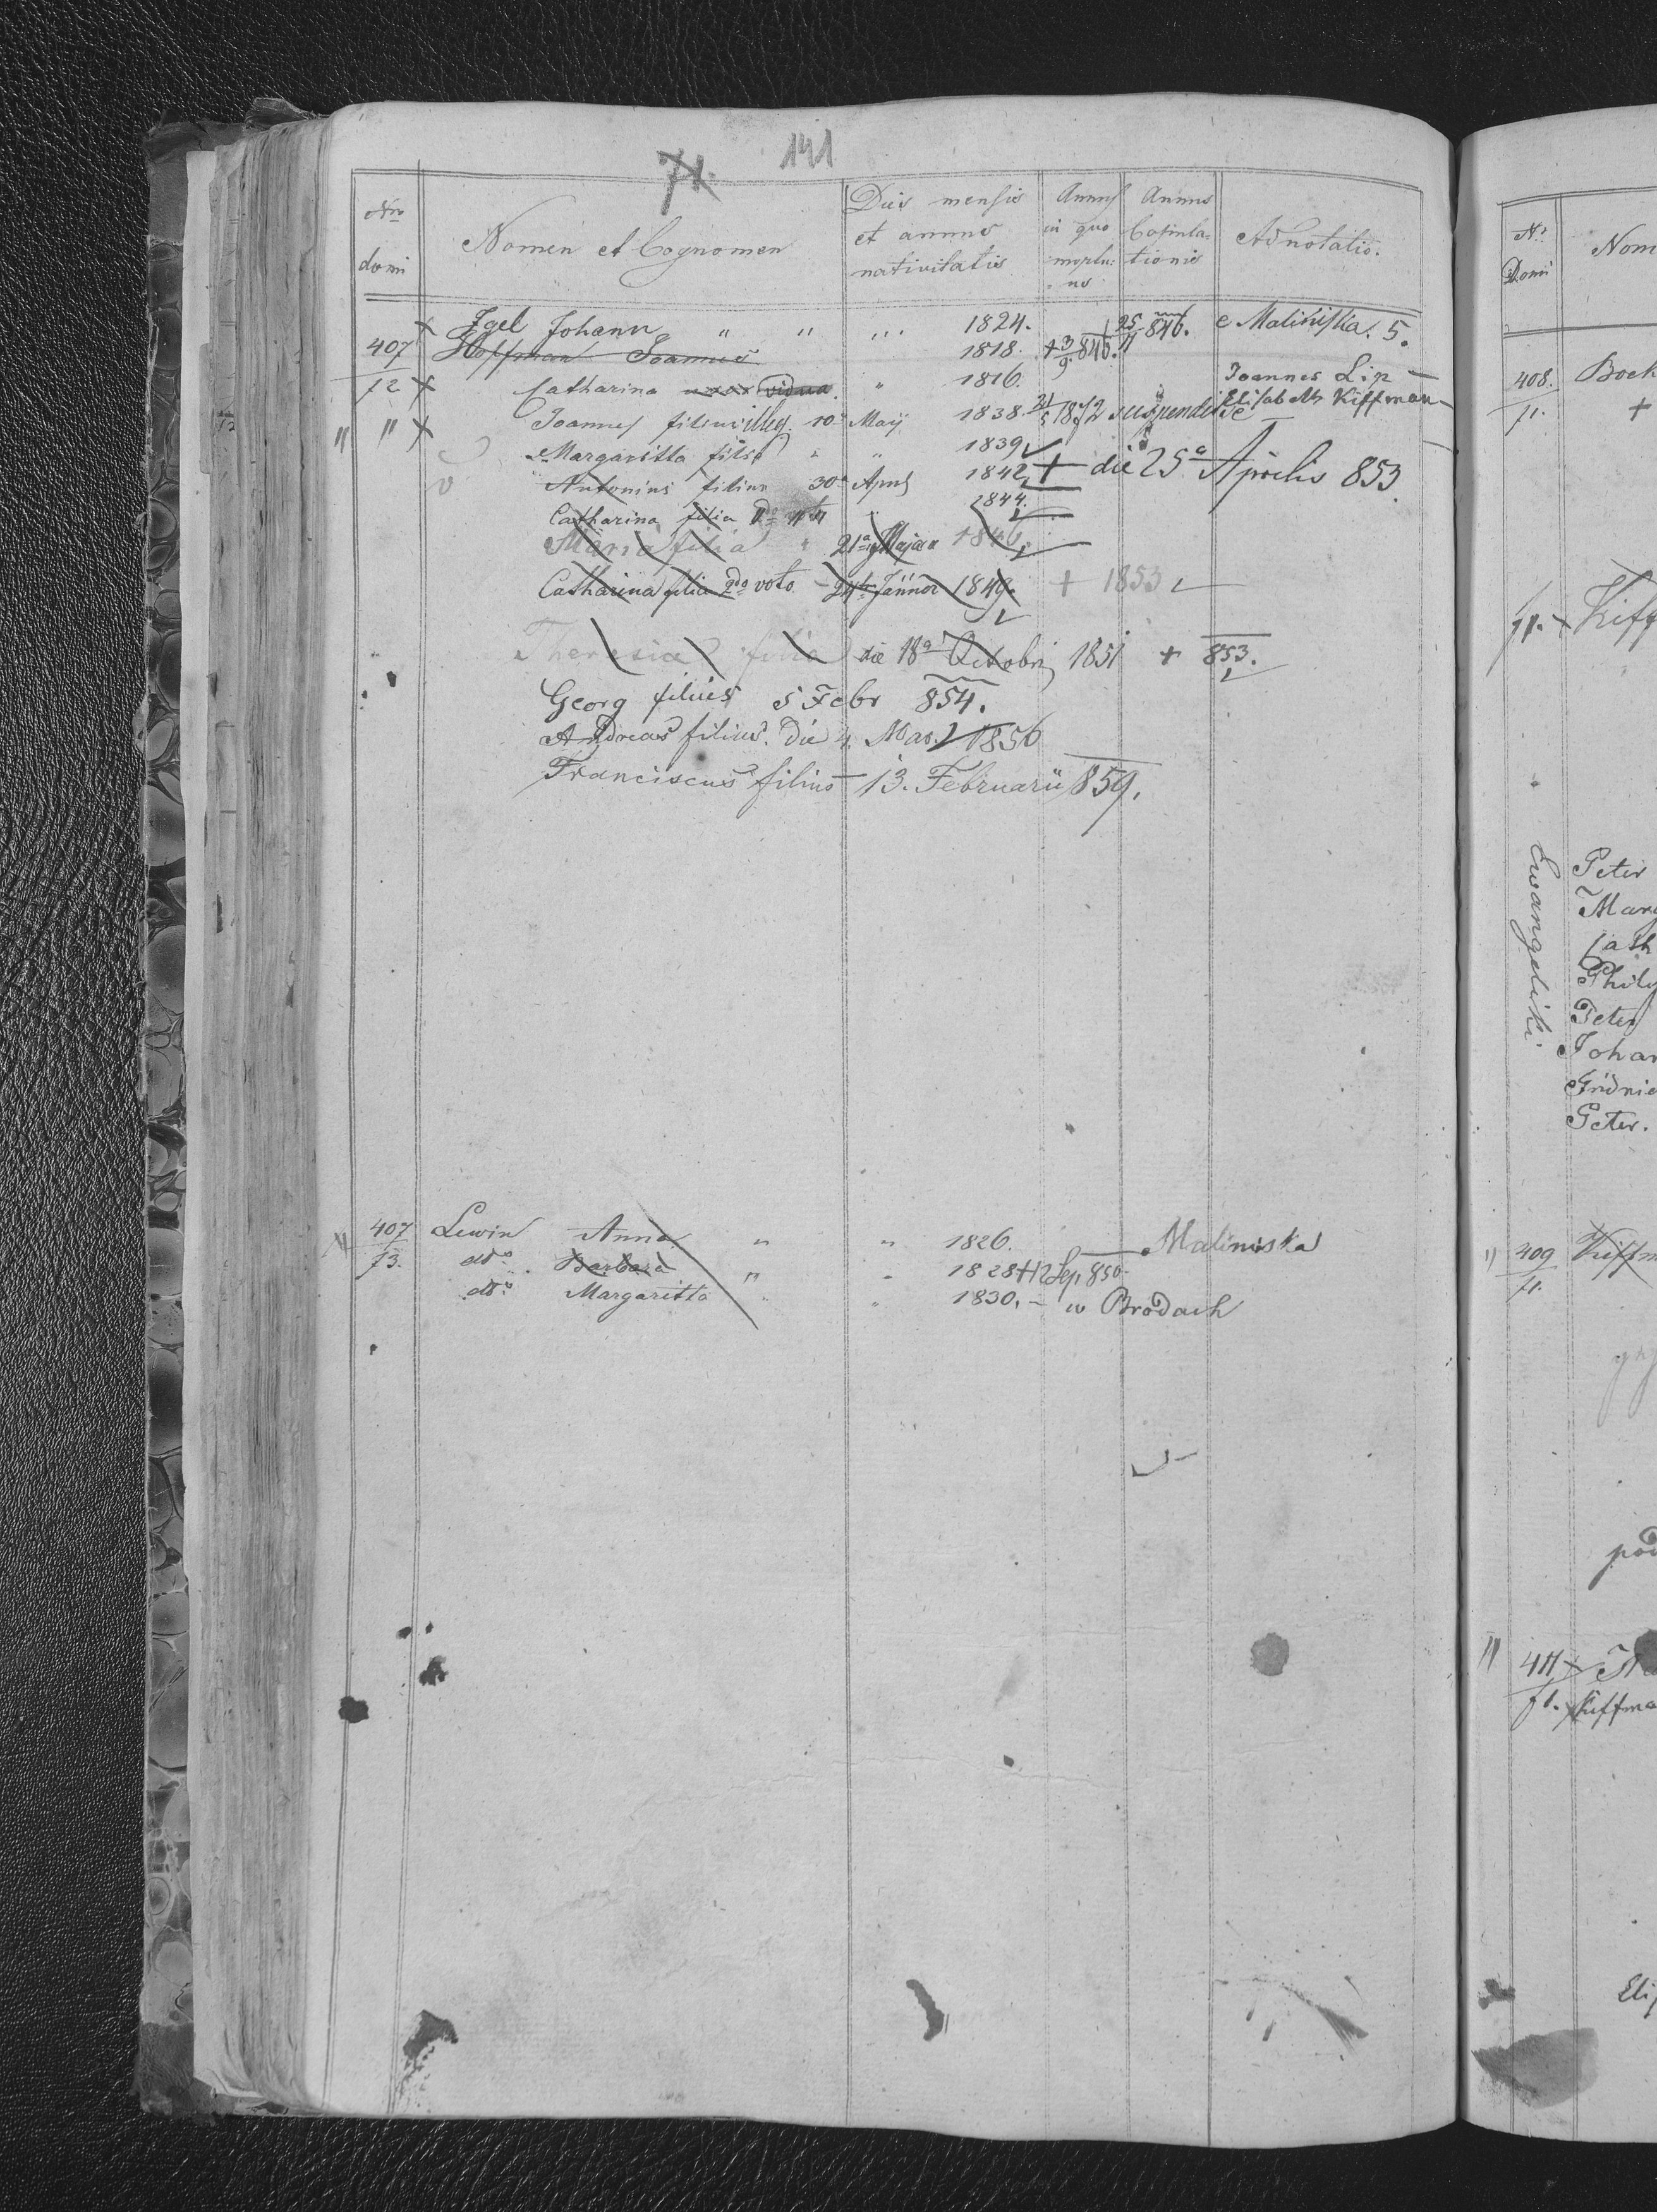 71. 141
Nro domi
Nomen et Cognomen
Dies mensis et annus nativitatis
Annus in quo mortuus
Annus Copulationis
Adnotatio.
Igel Johann " " " 1824. 25/11 846. e Maliniska. 5.
407 Hoffman Joannes 1818. + 3/9 846.
/2 Catharina vidua. " 1816. Joannes Lip
Joannes filius illeg. 10a Maij 1838. 1872 suspendit se Elisabeth Kiffman
Margaritta filia " " 1839
Antonius filius 30a April 1842 + die 25a Aprilis 853.
Catharina filia 1844.
Maria filia " 21a Maja 1846
Catharina filia 2do voto - 24t Jännor 1849. + 1853
Theresia filia die 18a Octobri 1851 + 853.
Georg filius 5 Febr 854.
Andreas filius. die 4. 1856
Franciscus filius - 13. Februarii 859.
407 Lewin Anna " " 1826. — Maliniska
/3. dto. Barbara " 1828 + 12 Sep. 850.
dto. Margaritta " " 1830. - w Brodach
No. Domi
Nom
408. Boek
/1. +
/1. Kiff
Ewangeliki.
Peter
Marg
Cath
Phili
Peter
Johan
Peter.
409 Kiffm
/1.
pod
411
/1. Kuffma
Eli